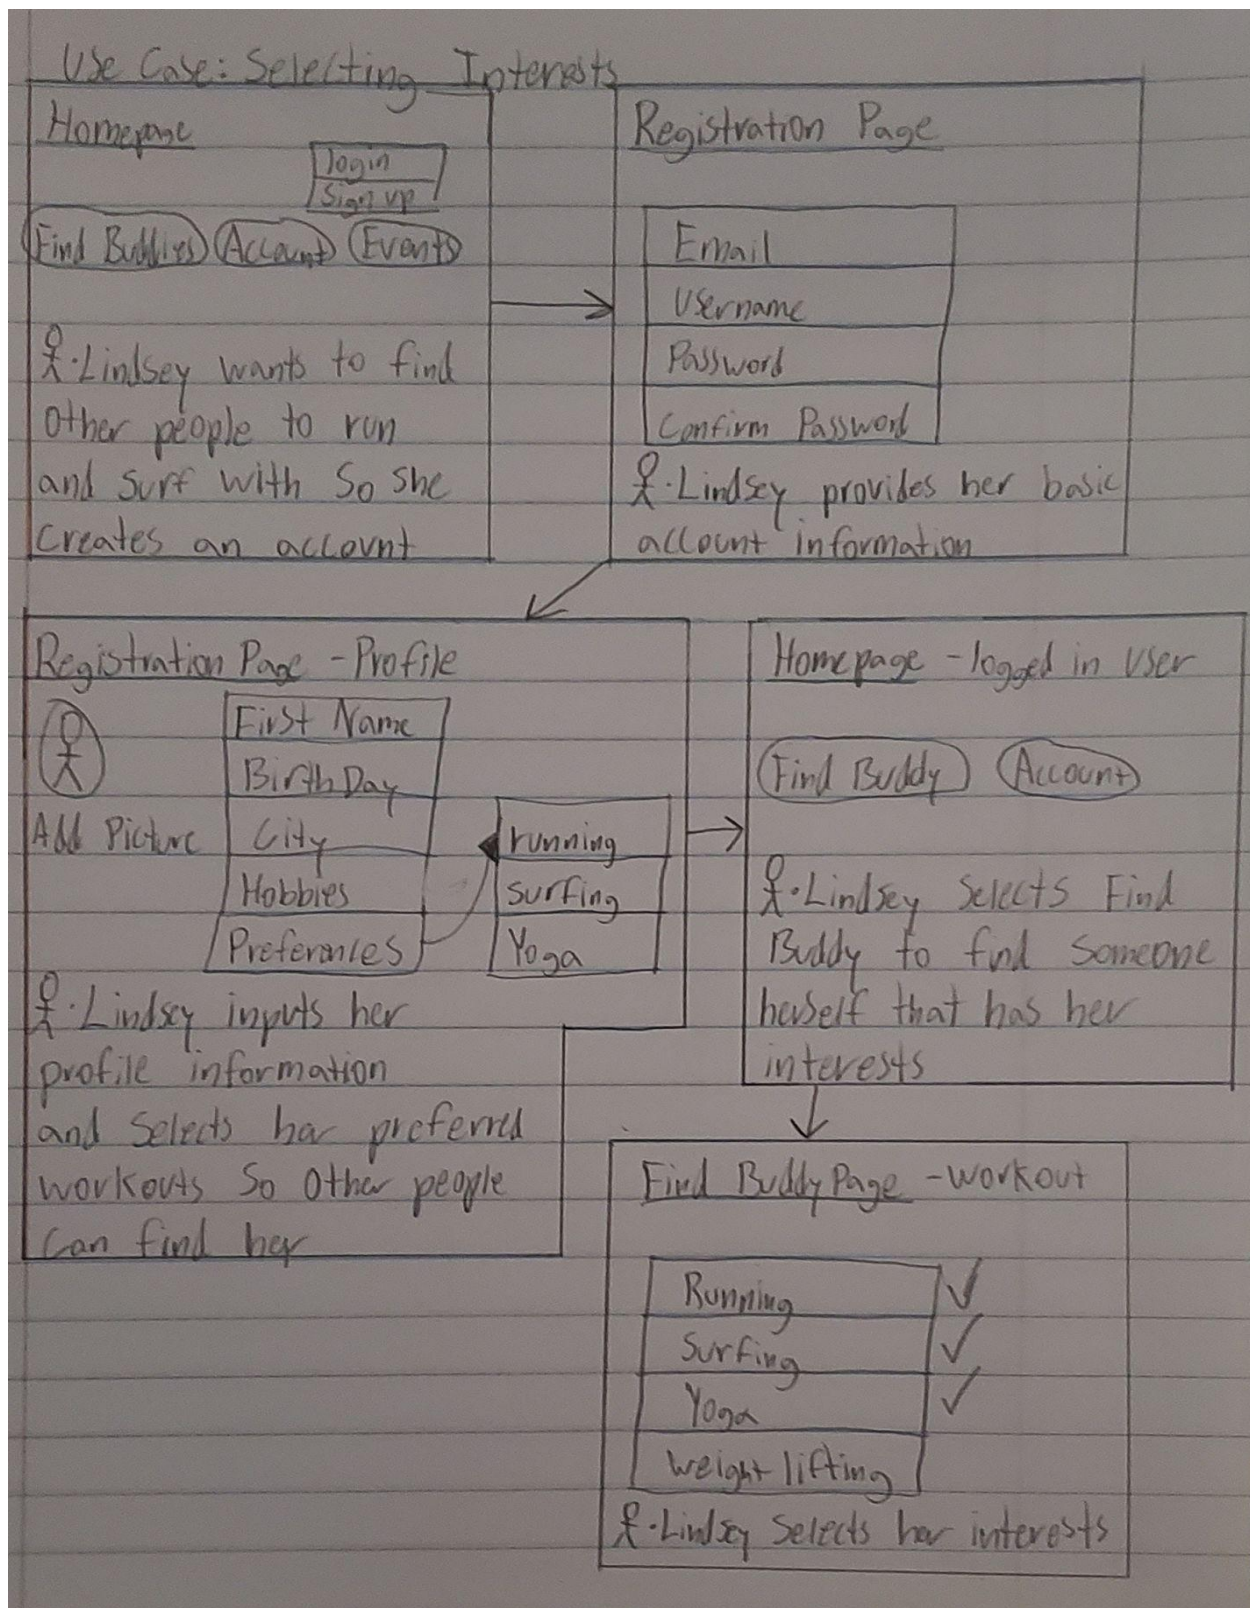 Use Case: Selecting Interests
Homepage
login
Sign up
Find Buddies Account Events
Lindsey wants to find
other people to run
and surf with so she
creates an account
Registration Page
Email
Username
Password
Confirm Password
Lindsey provides her basic
account information
Registration Page - Profile
Add Picture
First Name
BirthDay
City
Hobbies
Preferences
running
surfing
Yoga
Lindsey inputs her
profile information
and selects her preferred
workouts so other people
can find her
Homepage - logged in user
Find Buddy Account
Lindsey selects Find
Buddy to find someone
herself that has her
interests
Find Buddy Page - workout
Running ✓
Surfing ✓
Yoga ✓
weight lifting
Lindsey selects her interests